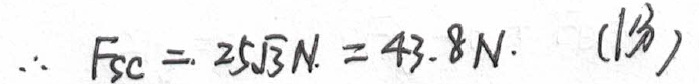 ∴ F_{SC} = 25√3 N. = 43.8 N. (1分)